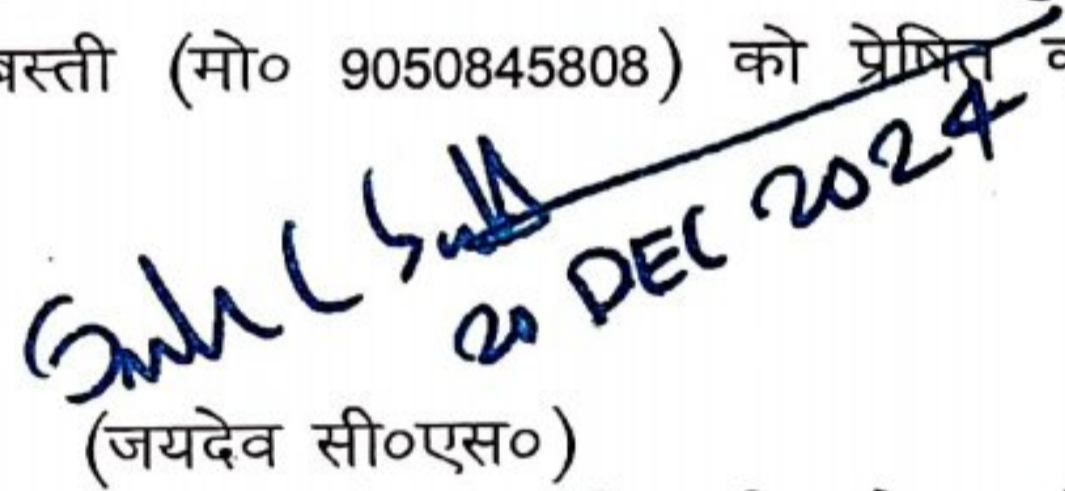 बस्ती (मो० 9050845808) को प्रेषित
20 DEC 2024
(जयदेव सी०एस०)